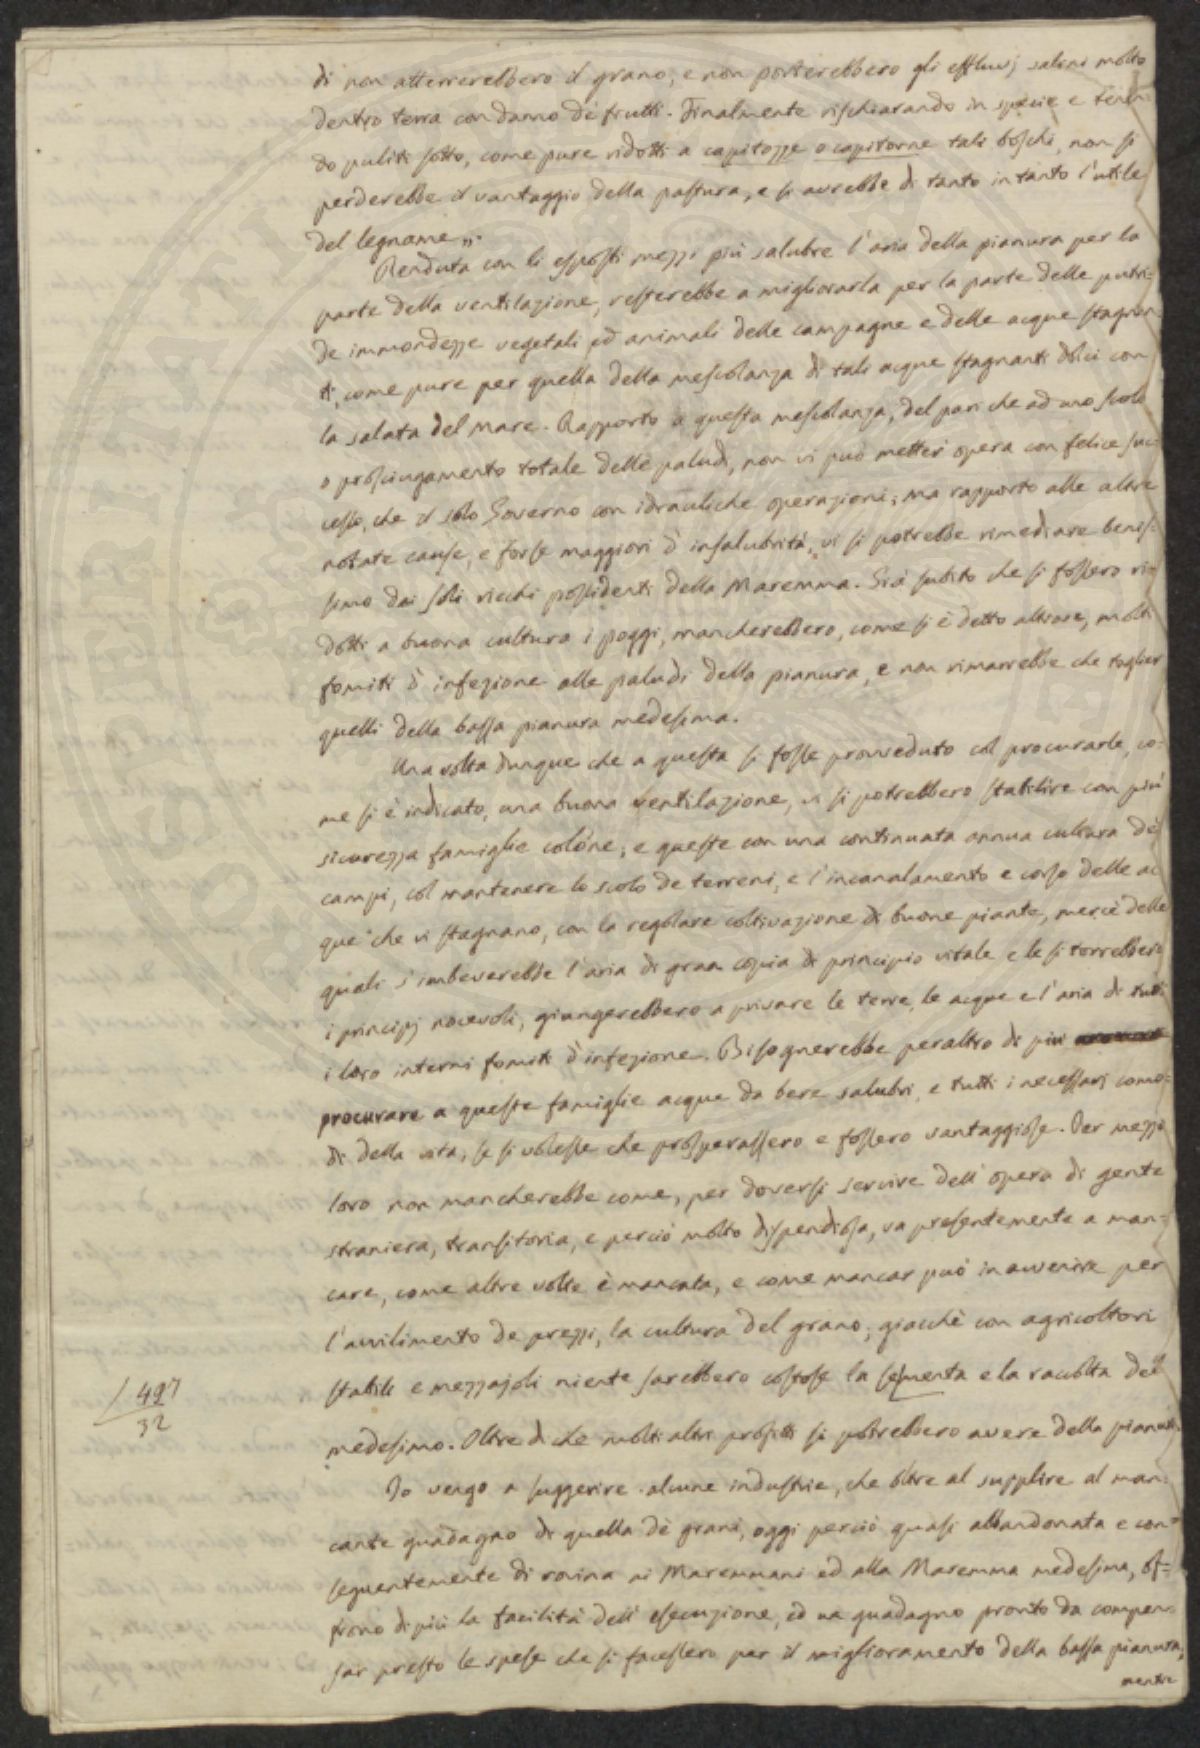 di non atterrerebbero il grano, e non porterebbero gli effluvj salini molto
dentro terra con danno de' frutti. Finalmente rischiarando in specie e tenen-
do puliti sotto, come pure ridotti a capitozze o capitorne tali boschi, non si
perderebbe il vantaggio della pastura, e si avrebbe di tanto in tanto l'utile
del legname„.
Renduta con li esposti mezzi più salubre l'aria della pianura per la
parte della ventilazione, resterebbe a migliorarla per la parte delle putri-
de immondezze vegetali ed animali delle campagne e delle acque stagnan
ti, come pure per quella della mescolanza di tali acque stagnanti dolci con
la salata del mare. Rapporto a questa mescolanza, del pari che ad uno scolo
o prosciugamento totale delle paludi, non vi può metter opera con felice suc-
cesso, che il solo Governo con idrauliche operazioni; ma rapporto alle altre
notate cause, e forse maggiori d'insalubrità, vi si potrebbe rimediare benis-
simo dai soli ricchi possidenti della Maremma. Già subito che si fossero ri
dotti a buona cultura i poggi, mancherebbero, come si è detto altrove, molti
fomiti d'infezione alle paludi della pianura, e non rimarrebbe che toglier
quelli della bassa pianura medesima.
Una volta dunque che a questa si fosse provveduto col procurarle, co-
me si è indicato, una buona ventilazione, vi si potrebbero stabilire con più
sicurezza famiglie colone; e queste con una continuata annua cultura de'
campi, col mantenere lo scolo de terreni, e l'incanalamento e corso delle ac
que che vi stagnano, con la regolare coltivazione di buone piante, mercè delle
quali s'imbeverebbe l'aria di gran copia di principio vitale e le si torrebbero
i principj nocevoli, giungerebbero a privare le terre, le acque e l'aria di tutti
i loro interni fomiti d'infezione. Bisognerebbe peraltro di più
procurare a queste famiglie acque da bere salubri, e tutti i necessarj como-
di della vita, se si volesse che prosperassero e fossero vantaggiose. Per mezzo
loro non mancherebbe come, per doversi servire dell'opera di gente
straniera, transitoria, e perciò molto dispendiosa, va presentemente a man-
care, come altre volte è mancata, e come mancar può in avvenire per
l'avvilimento de prezzi, la cultura del grano; giacchè con agricoltori
stabili e mezzajoli niente sarebbero costose la sementa e la raccolta del
medesimo. Oltre di che molti altri profitti si potrebbero avere della pianura.
Io vengo a suggerire alcune industrie, che oltre al supplire al man-
cante guadagno di quella de' grani, oggi perciò quasi abbandonata e con-
seguentemente di rovina ai Maremmani ed alla Maremma medesima, of-
frono di più la facilità dell'esecuzione, ed un guadagno pronto da compen-
sar presto le spese che si facessero per il miglioramento della bassa pianura,
mentre
497
32